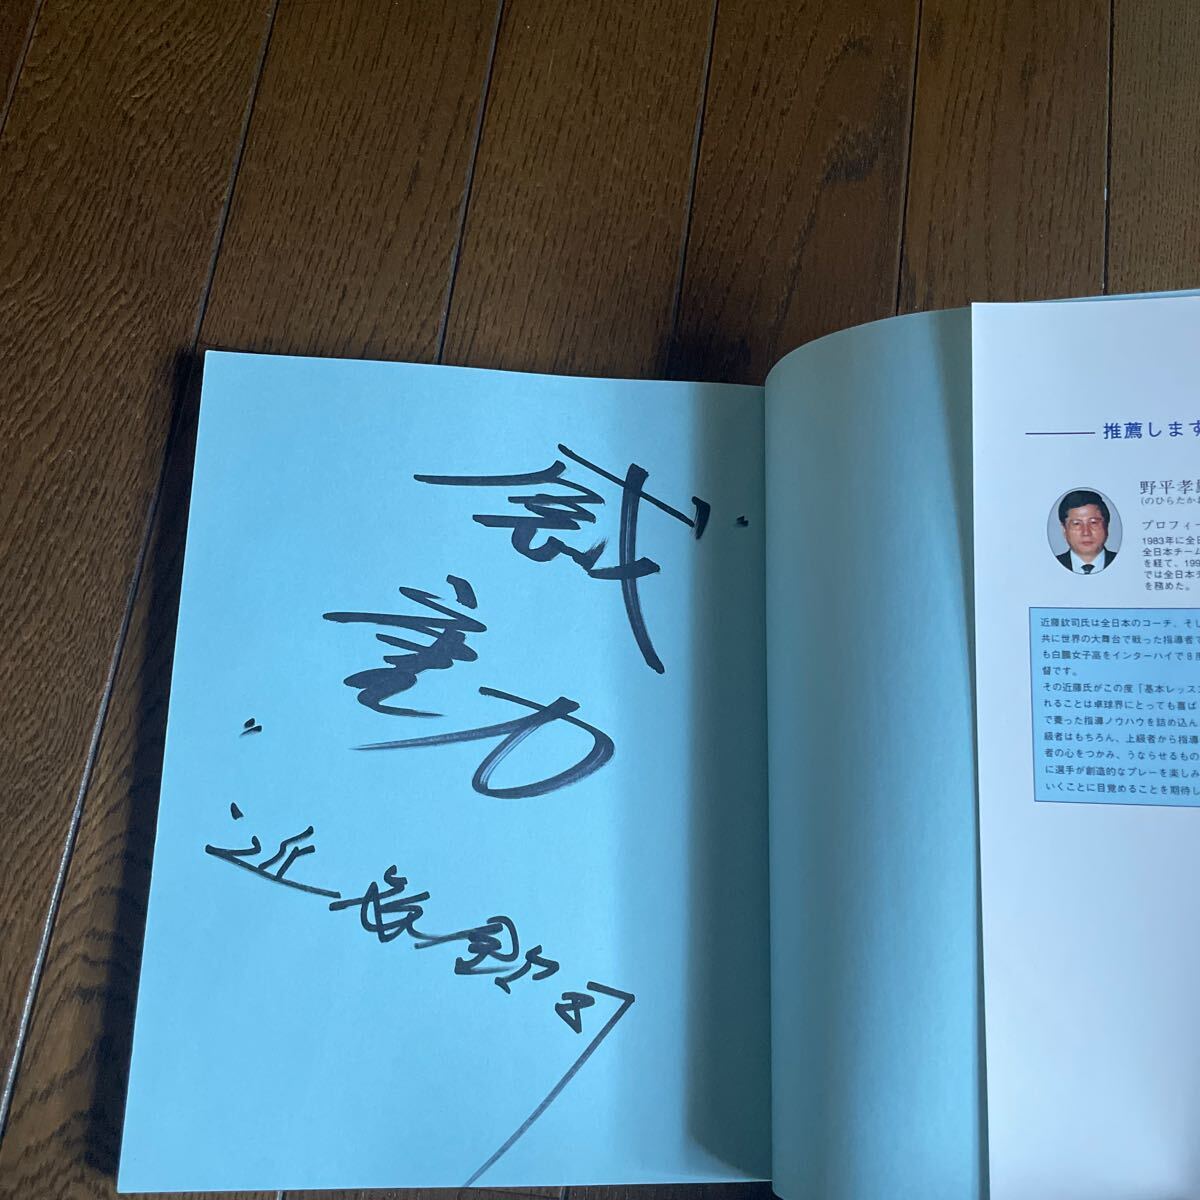 力
近藤欽司
推薦します
野平孝
(のひらたか
プロフィー
1983年に全
全日本チーム
を経て、199
では全日本
を務めた。
近藤欽司氏は全日本のコーチ、そし
共に世界の大舞台で戦った指導者で
も白鵬女子高をインターハイで8度
督です。
その近藤氏がこの度「基本レッス
れることは卓球界にとっても喜ば
で養った指導ノウハウを詰め込ん
級者はもちろん、上級者から指導
者の心をつかみ、うならせるもの
に選手が創造的なプレーを楽しみ
いくことに目覚めることを期待し